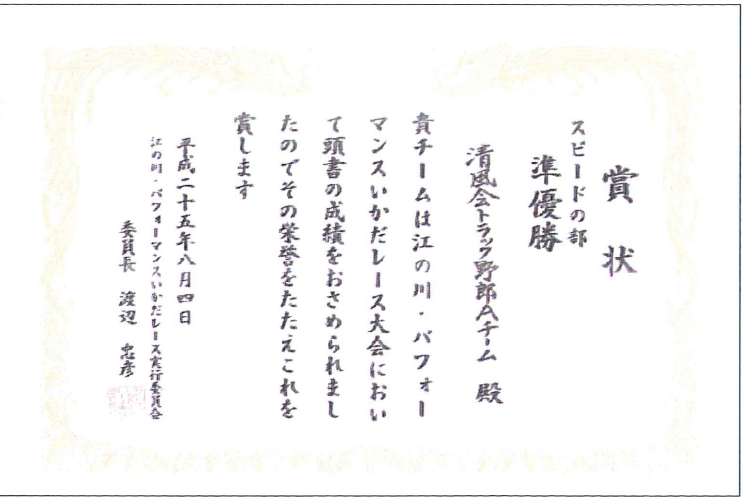 賞状
スピードの部
準優勝
清風会トラック野郎Aチーム 殿
貴チームは江の川・パフォー
マンスいかだレース大会におい
て頭書の成績をおさめられまし
たのでその栄誉をたたえこれを
賞します
平成二十五年八月四日
江の川・パフォーマンスいかだレース実行委員会
委員長 渡辺 忠彦